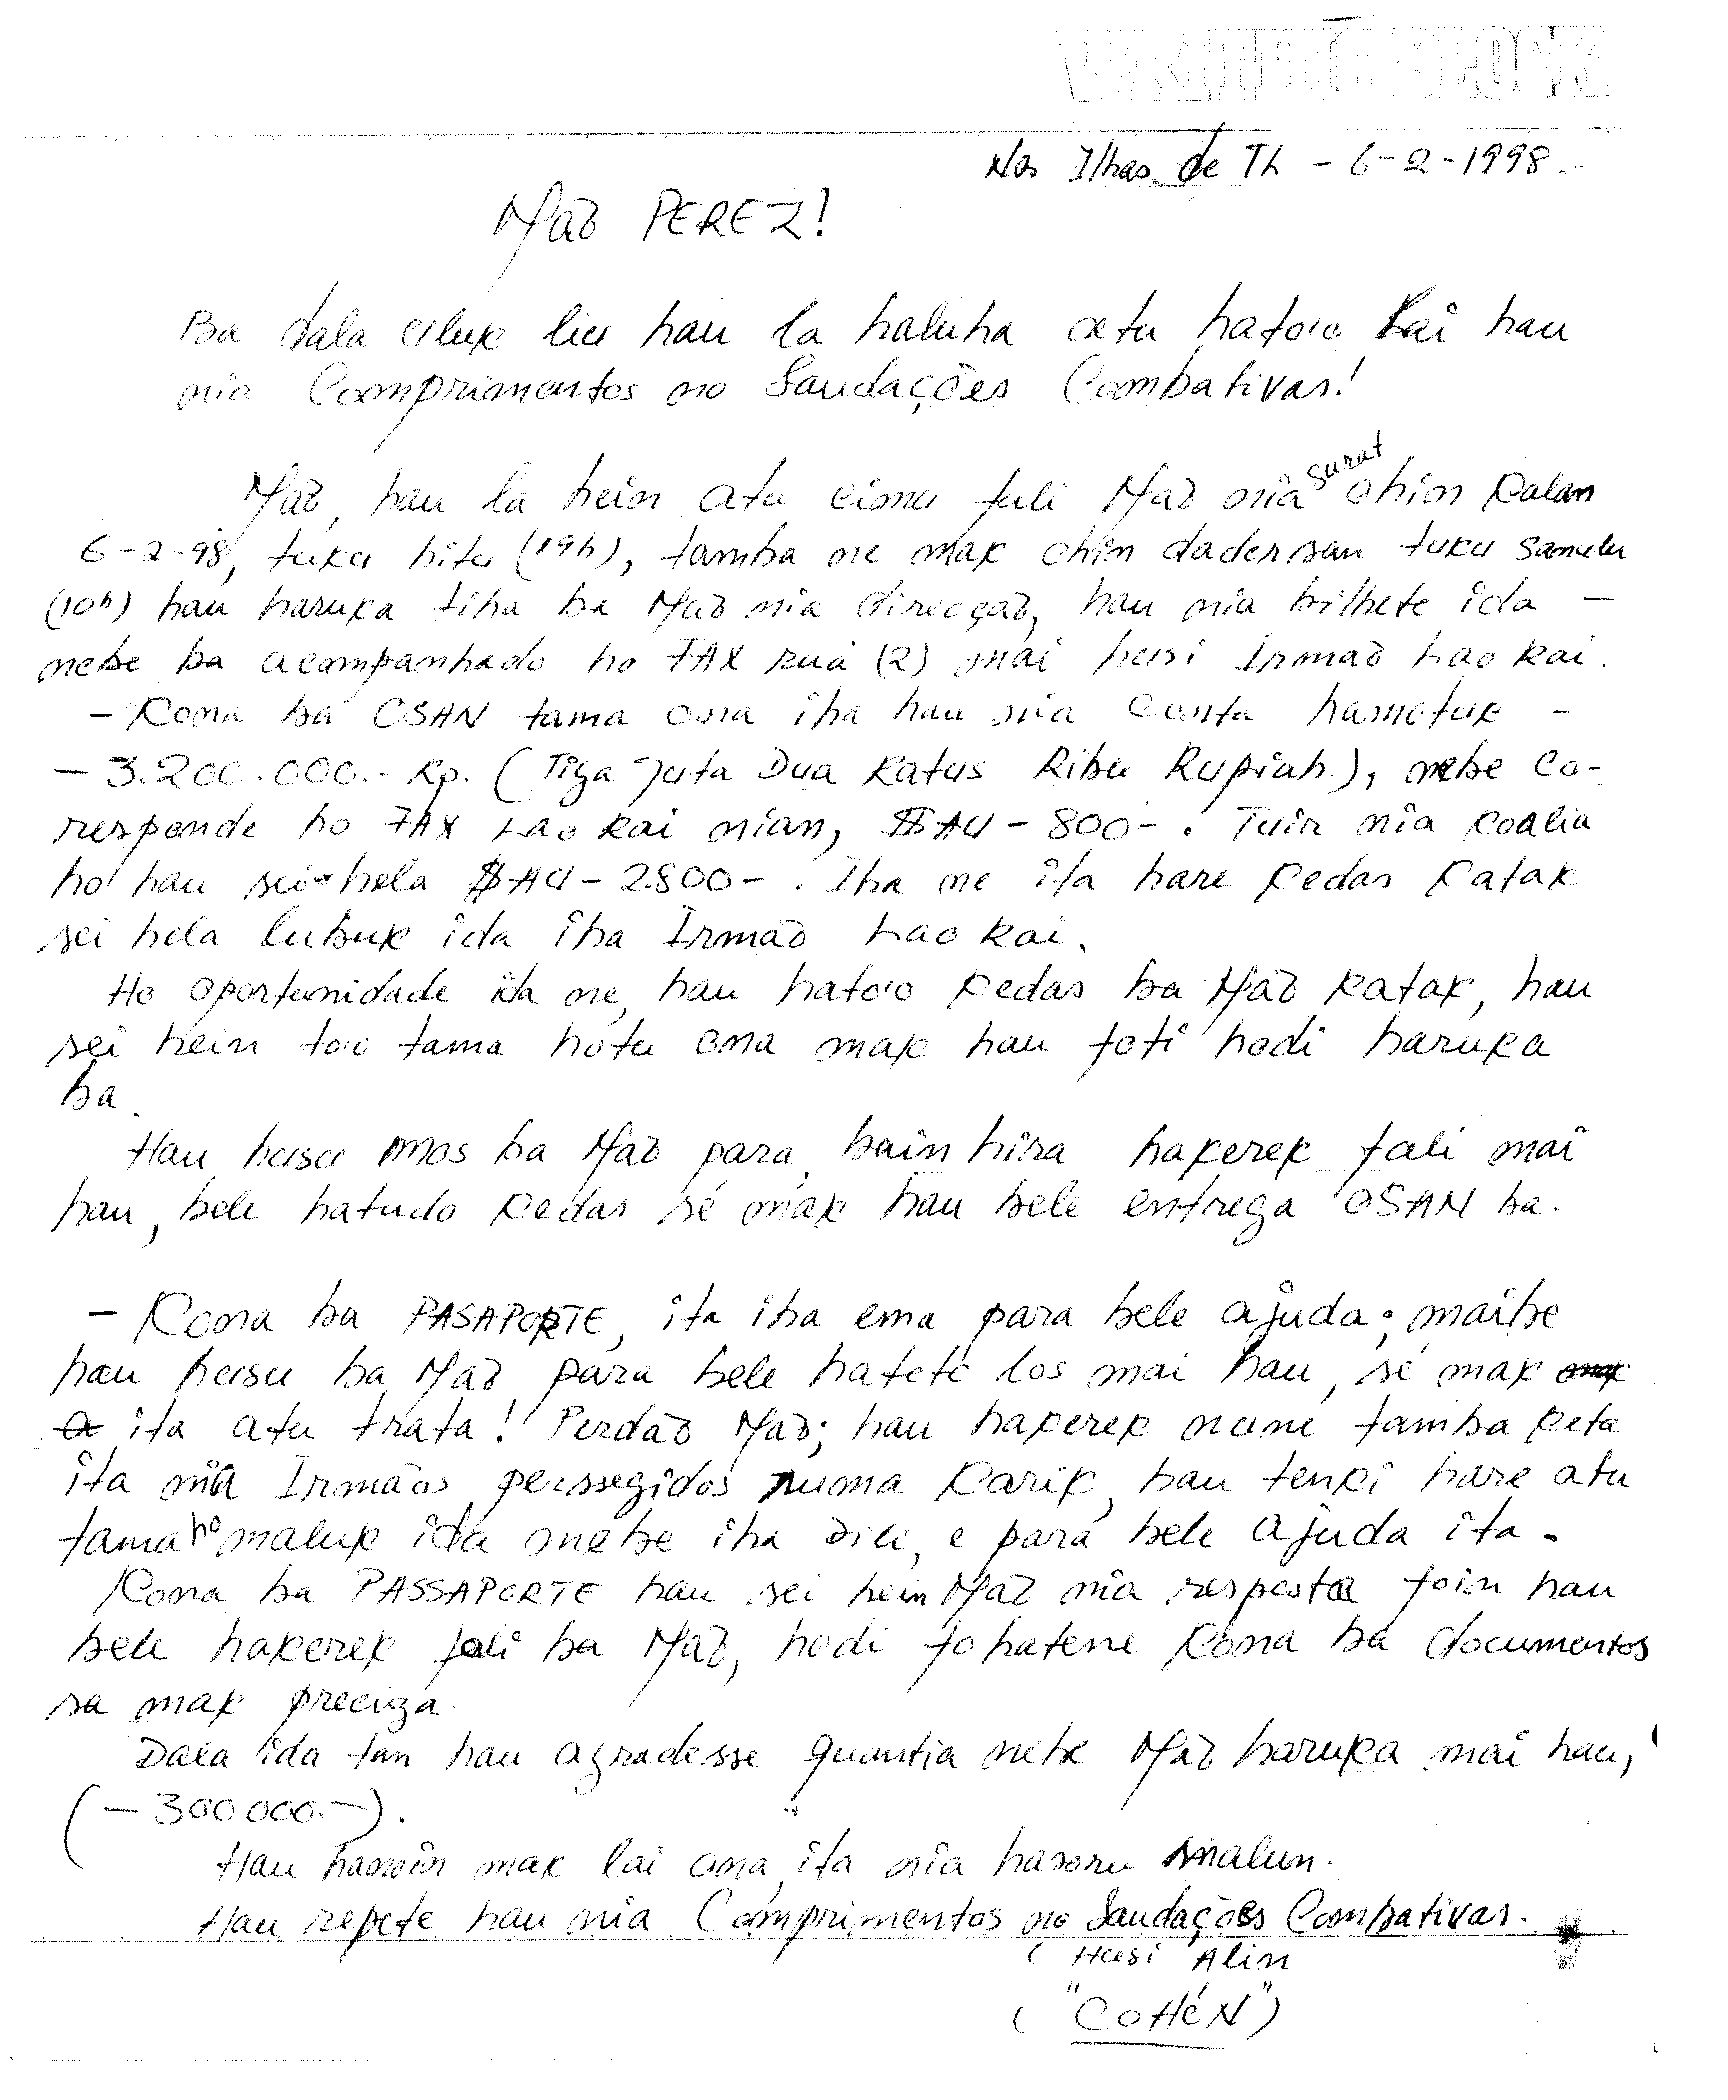 Nas Ilhas de Th - 6-2-1998.-
Maõ PEREZ!
Ba dala uluk liu hau la haluha atu hatoo lai hau
nia Comprimentos no Saudações Combativas!
Maõ, hau la hein atu simu fali Maõ nia surat ohin kalan
6-2-98, tuku hitu (19h), tamba ne mak ohin dadersan tuku Samulu
(10h) hau haruka tiha ba Maõ nia direcçaõ, hau nia bilhete ida -
nebe ba acompanhado ho FAX rua (2) mai husi Irmaõ Lao kai.
- Kona ba OSAN tama ona iha hau nia Conta hamutuk -
- 3.200.000.- Rp. (Tiga Juta Dua Ratus Ribu Rupiah), nebe Co-
responde ho FAX Lao kai nian, $AU - 800 - . Tuir nia koalia
ho hau sei hela $AU - 2.800 - . Iha ne ita hare kedas katak
sei hela lubuk ida iha Irmaõ Lao kai.
Ho oportunidade ida ne, hau hatoo kedas ba Maõ katak, hau
sei hein too tama hotu ona mak hau foti hodi haruka
ba.
Hau husu mos ba Maõ para bain hira hakerek fali mai
hau, bele hatudo kedas sé mak hau bele entrega OSAN ba.
- Kona ba PASAPORTE, ita iha ema para bele ajuda; maibe
hau husu ba Maõ para bele hatete los mai hau, sé mak
ita atu trata! Perdaõ Maõ; hau hakerek nune tamba keta
ita nia Irmãos perssegidos ruma karik, hau tenki hare atu
tama ho maluk ida nebe iha Dili, e para bele ajuda ita.
Kona ba PASSAPORTE hau sei hein Maõ nia resposta foin hau
bele hakerek fali ba Maõ, hodi fo hatene kona ba documentos
sa mak preciza.
Dala ida tan hau agradesse quantia nebe Maõ haruka mai hau,
(- 300 000.-).
Hau hanoin mak lai ona ita nia hasoru malun.
Hau repete hau nia Comprimentos no Saudações Combativas.
( Husi Alin
( "COHÉN")